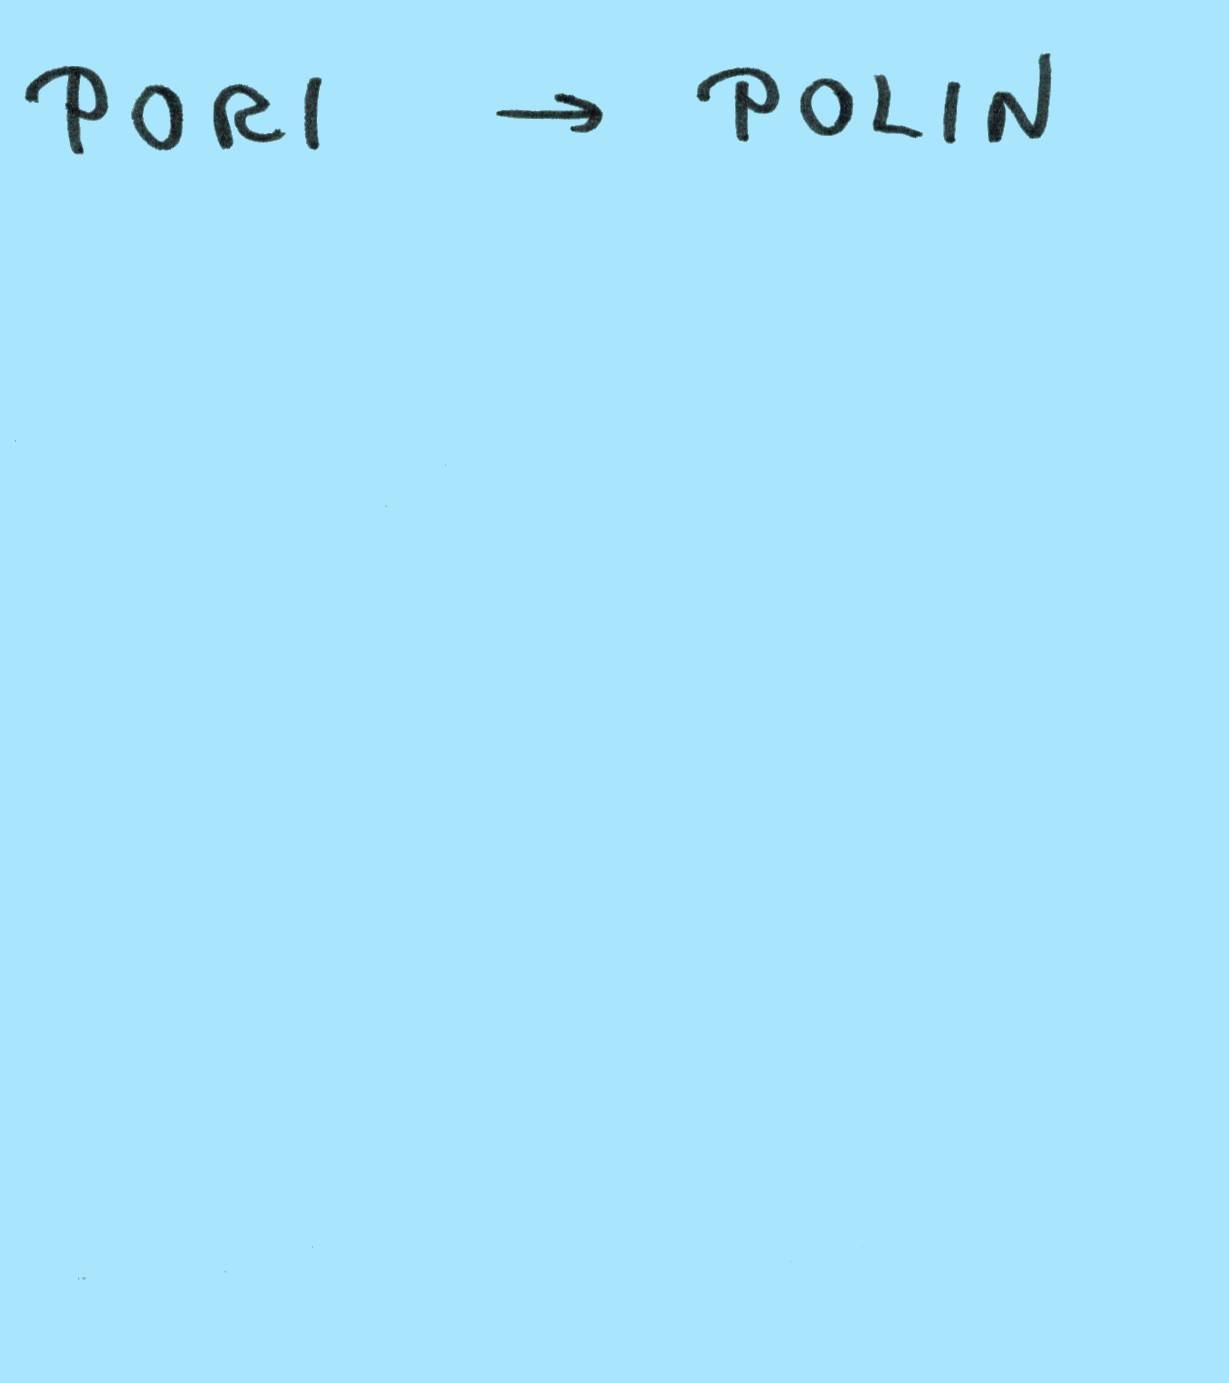 PORI → POLIN